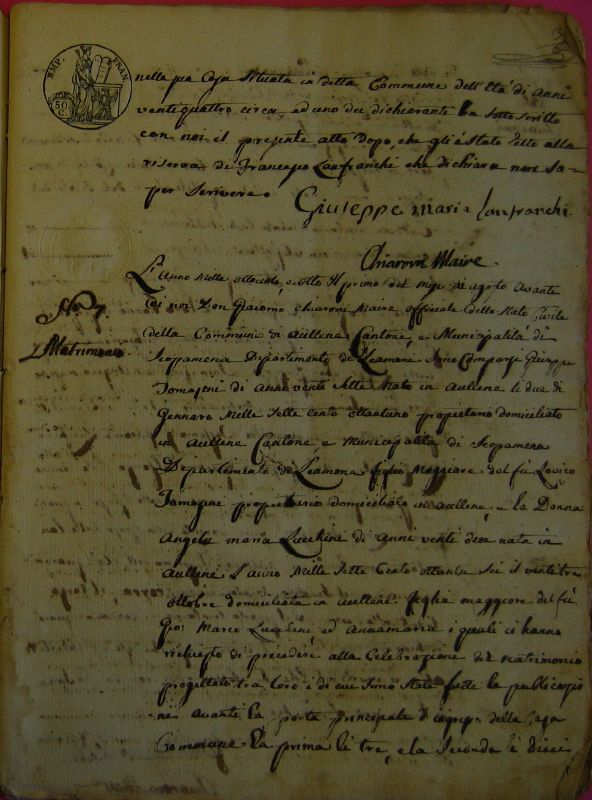 EMP. FRAN.
50 C.
nella sua Casa Situata in detta Commune dell'Età di anni
venti quattro circa, ed uno dei dichiarante ha sotto Scritto
con noi il presente atto dopo, che gli è stato letto alla
riserva di Francesco Lanfranchi che dichiara non sa-
per Scrivere.
Giuseppe maria Lanfranchi
Chiaroni Maire
L'Anno Mille ottocento, e otto Il primo del mese di agosto Avante
di noi Don Giacomo Chiaroni Maire officiale dello Stato Civile
No. 7
della Commune di aullena Cantone, e Municipalità di
Matrimonio
Scopamena Dipartimento di Liamone Sono Comparsi Giuseppe
Tomasini di Anni venti Sette Nato in Aullene li due di
Gennaro Mille Sette cento ottantuno propietario domiciliato
in aullene Cantone e Municipalità di Scopamena
Departimento di Liamone figlio Maggiore del fù Lovico
Tomasini propietario domiciliato in aullene, e la Donna
Angela maria Lucchini di Anni venti due nata in
Aullene L'anno Mille Sette Cento ottanta Sei il venti tre
ottobre domiciliata in aullene figlia maggiore del fù
Gio: Marco Lucchini ed Annamaria i quali ci hanno
richiesto di procedere alla Celebrazione del Matrimonio
progettato tra loro i di cui Sono State fatte la publicazio
ne avante la porta principale d'ingresso della Casa
Commune La prima li tre, e la Seconda li dieci